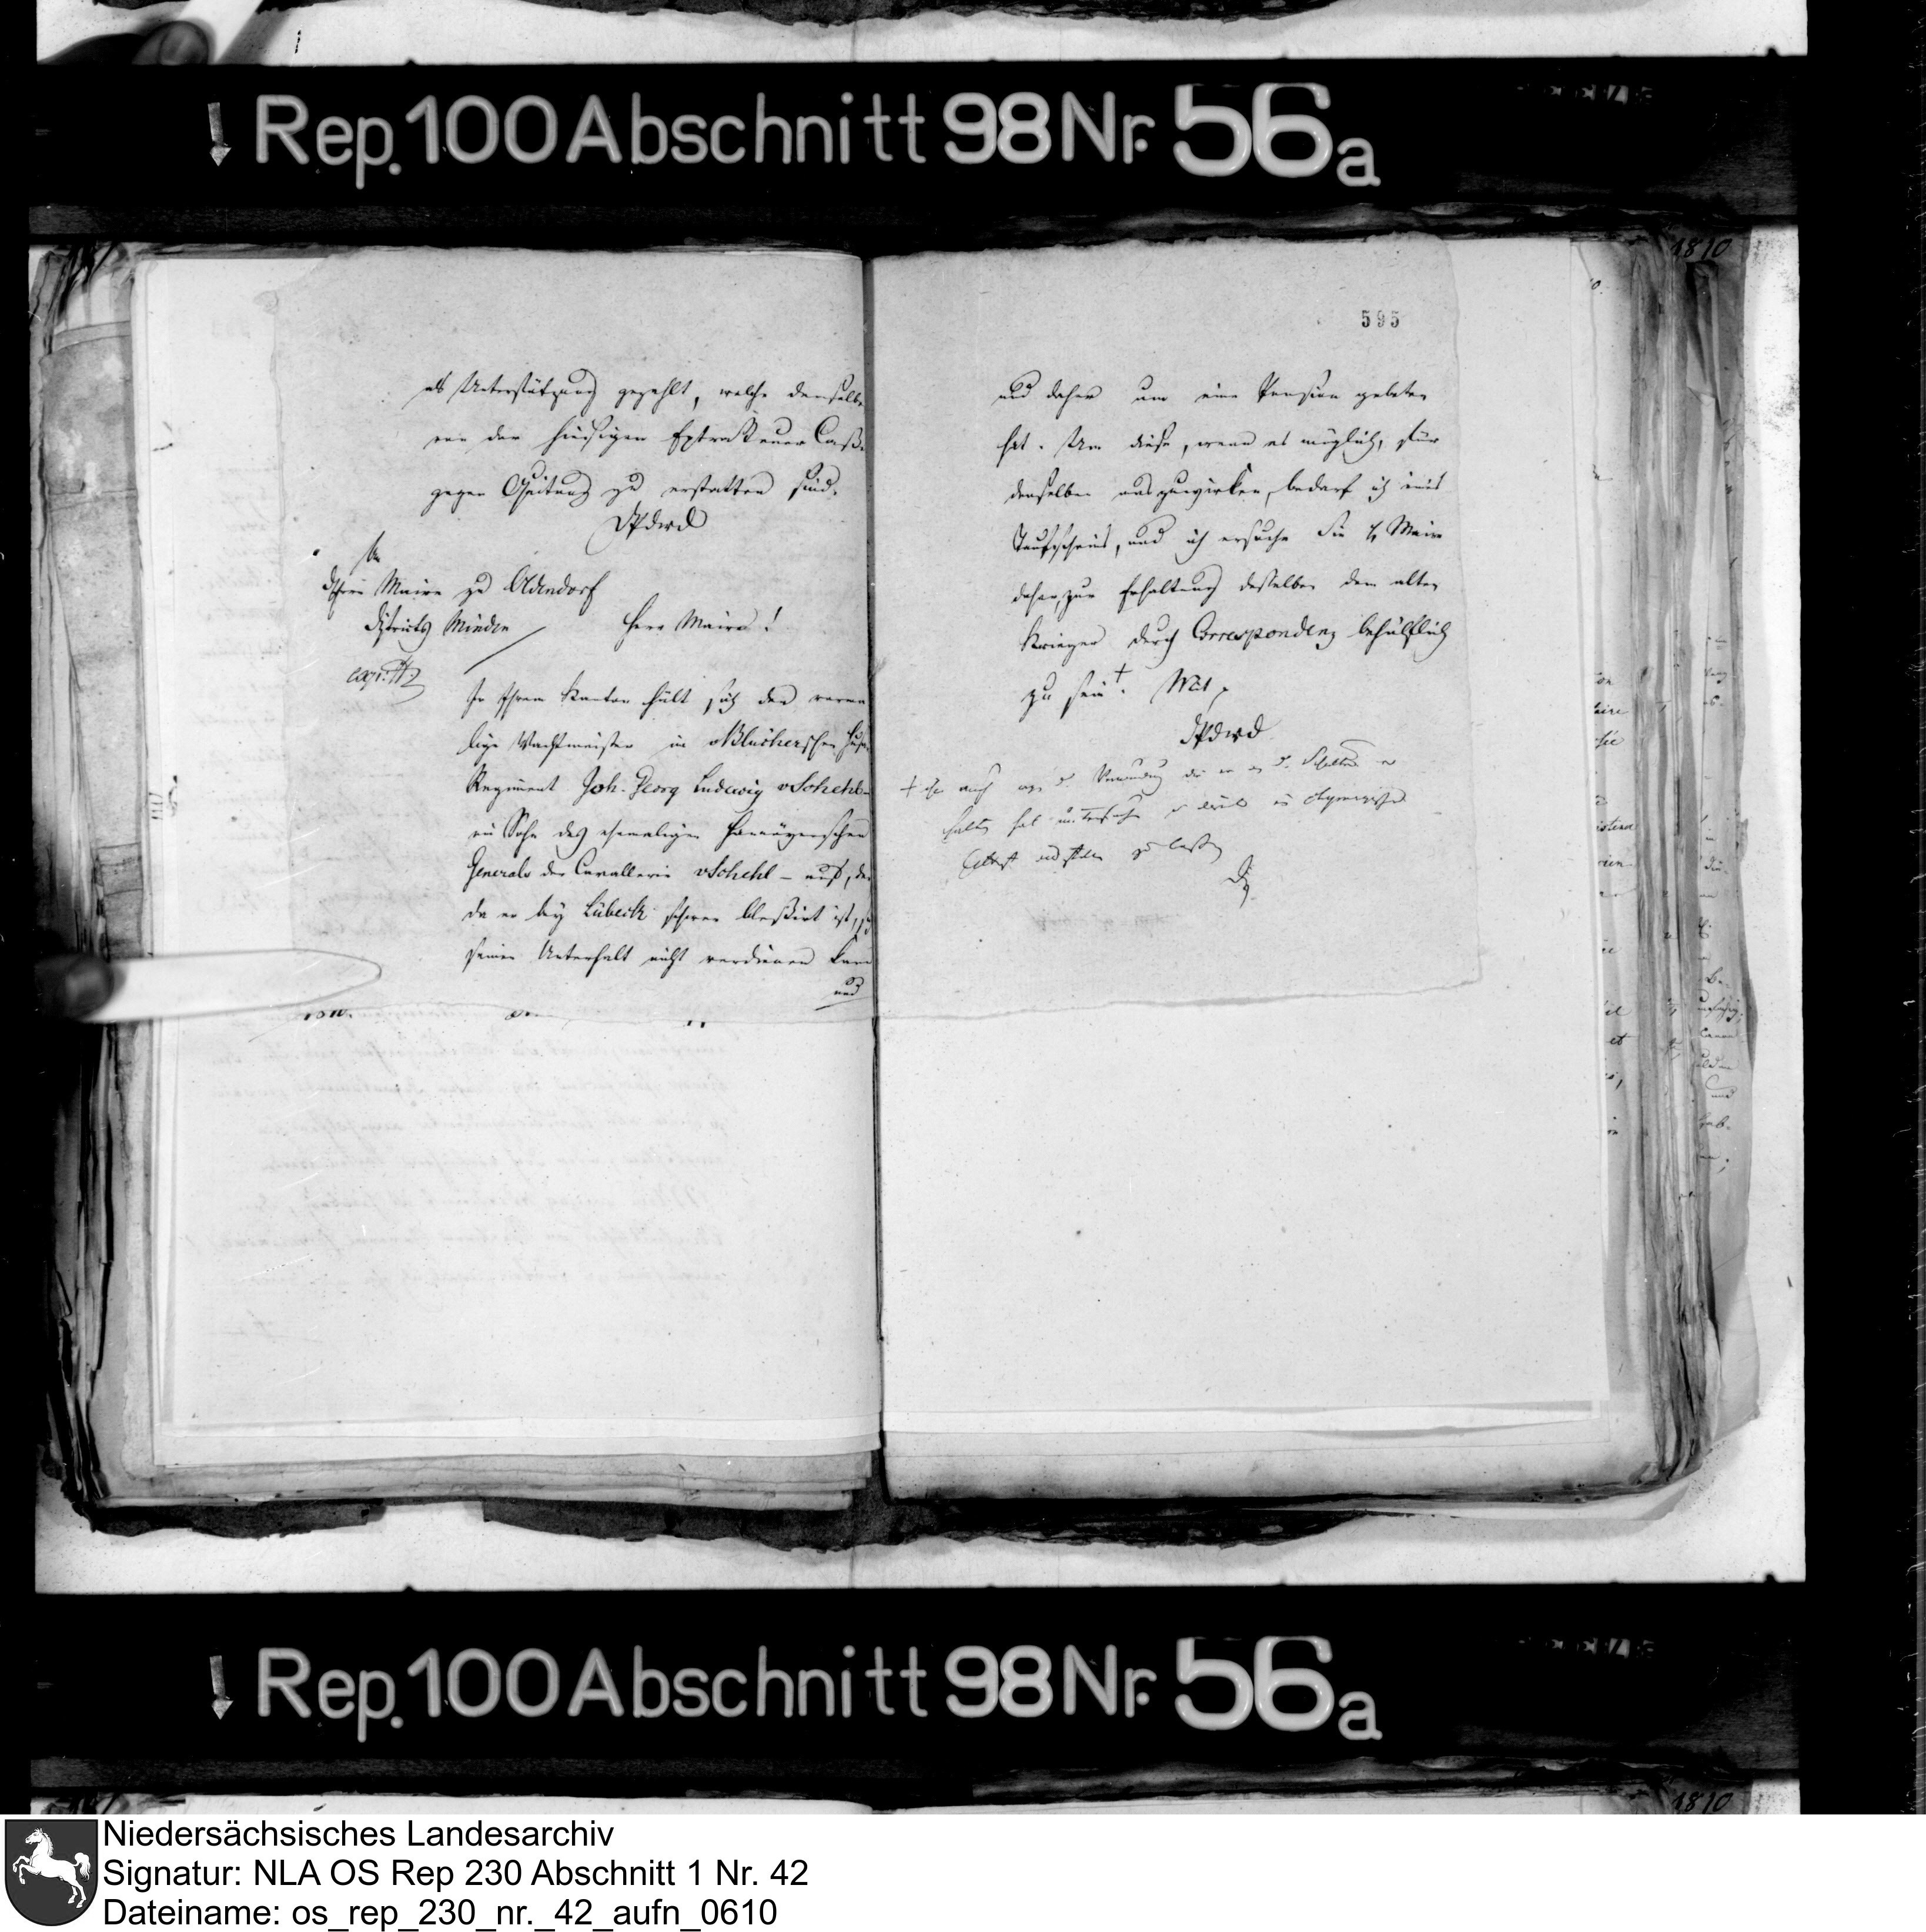 Rep. 100 Abschnitt 98 Nr. 56a
1810
595
als Unterstützung gezahlt, welche denselben
von der hiesigen Extrasteuer Casse
gegen Quitung zu erstatten sind.
An
Herrn Maire zu Oldendorf
Districts Minden
Herr Maire!
In Ihrem Kanton hält sich der vorma
lige Wachtmeister im v Blücherschen Husa
Regiment Joh. Georg Ludwig v Schehl
ein Sohn des ehemaligen Hannöverschen
Generals der Cavallerie v Schehl – auf, der
da er bey Lübeck schwer blessirt ist, sich
seinen Unterhalt nicht verdienen kann
und
und daher um eine Pension gebeten
hat. Um diese, wenn es möglich, für
denselben auszuwirken, bedarf ich eines
Taufscheins, und ich ersuche Sie H Maire
daher, zur Erhaltung desselben dem alten
Krieger durch Correspondenz behülflich
zu sein +. Mit
+ auch
halten hat untersuchen
Attest ausstellen zu lassen
Rep. 100 Abschnitt 98 Nr. 56a
1810
Niedersächsisches Landesarchiv
Signatur: NLA OS Rep 230 Abschnitt 1 Nr. 42
Dateiname: os_rep_230_nr._42_aufn_0610